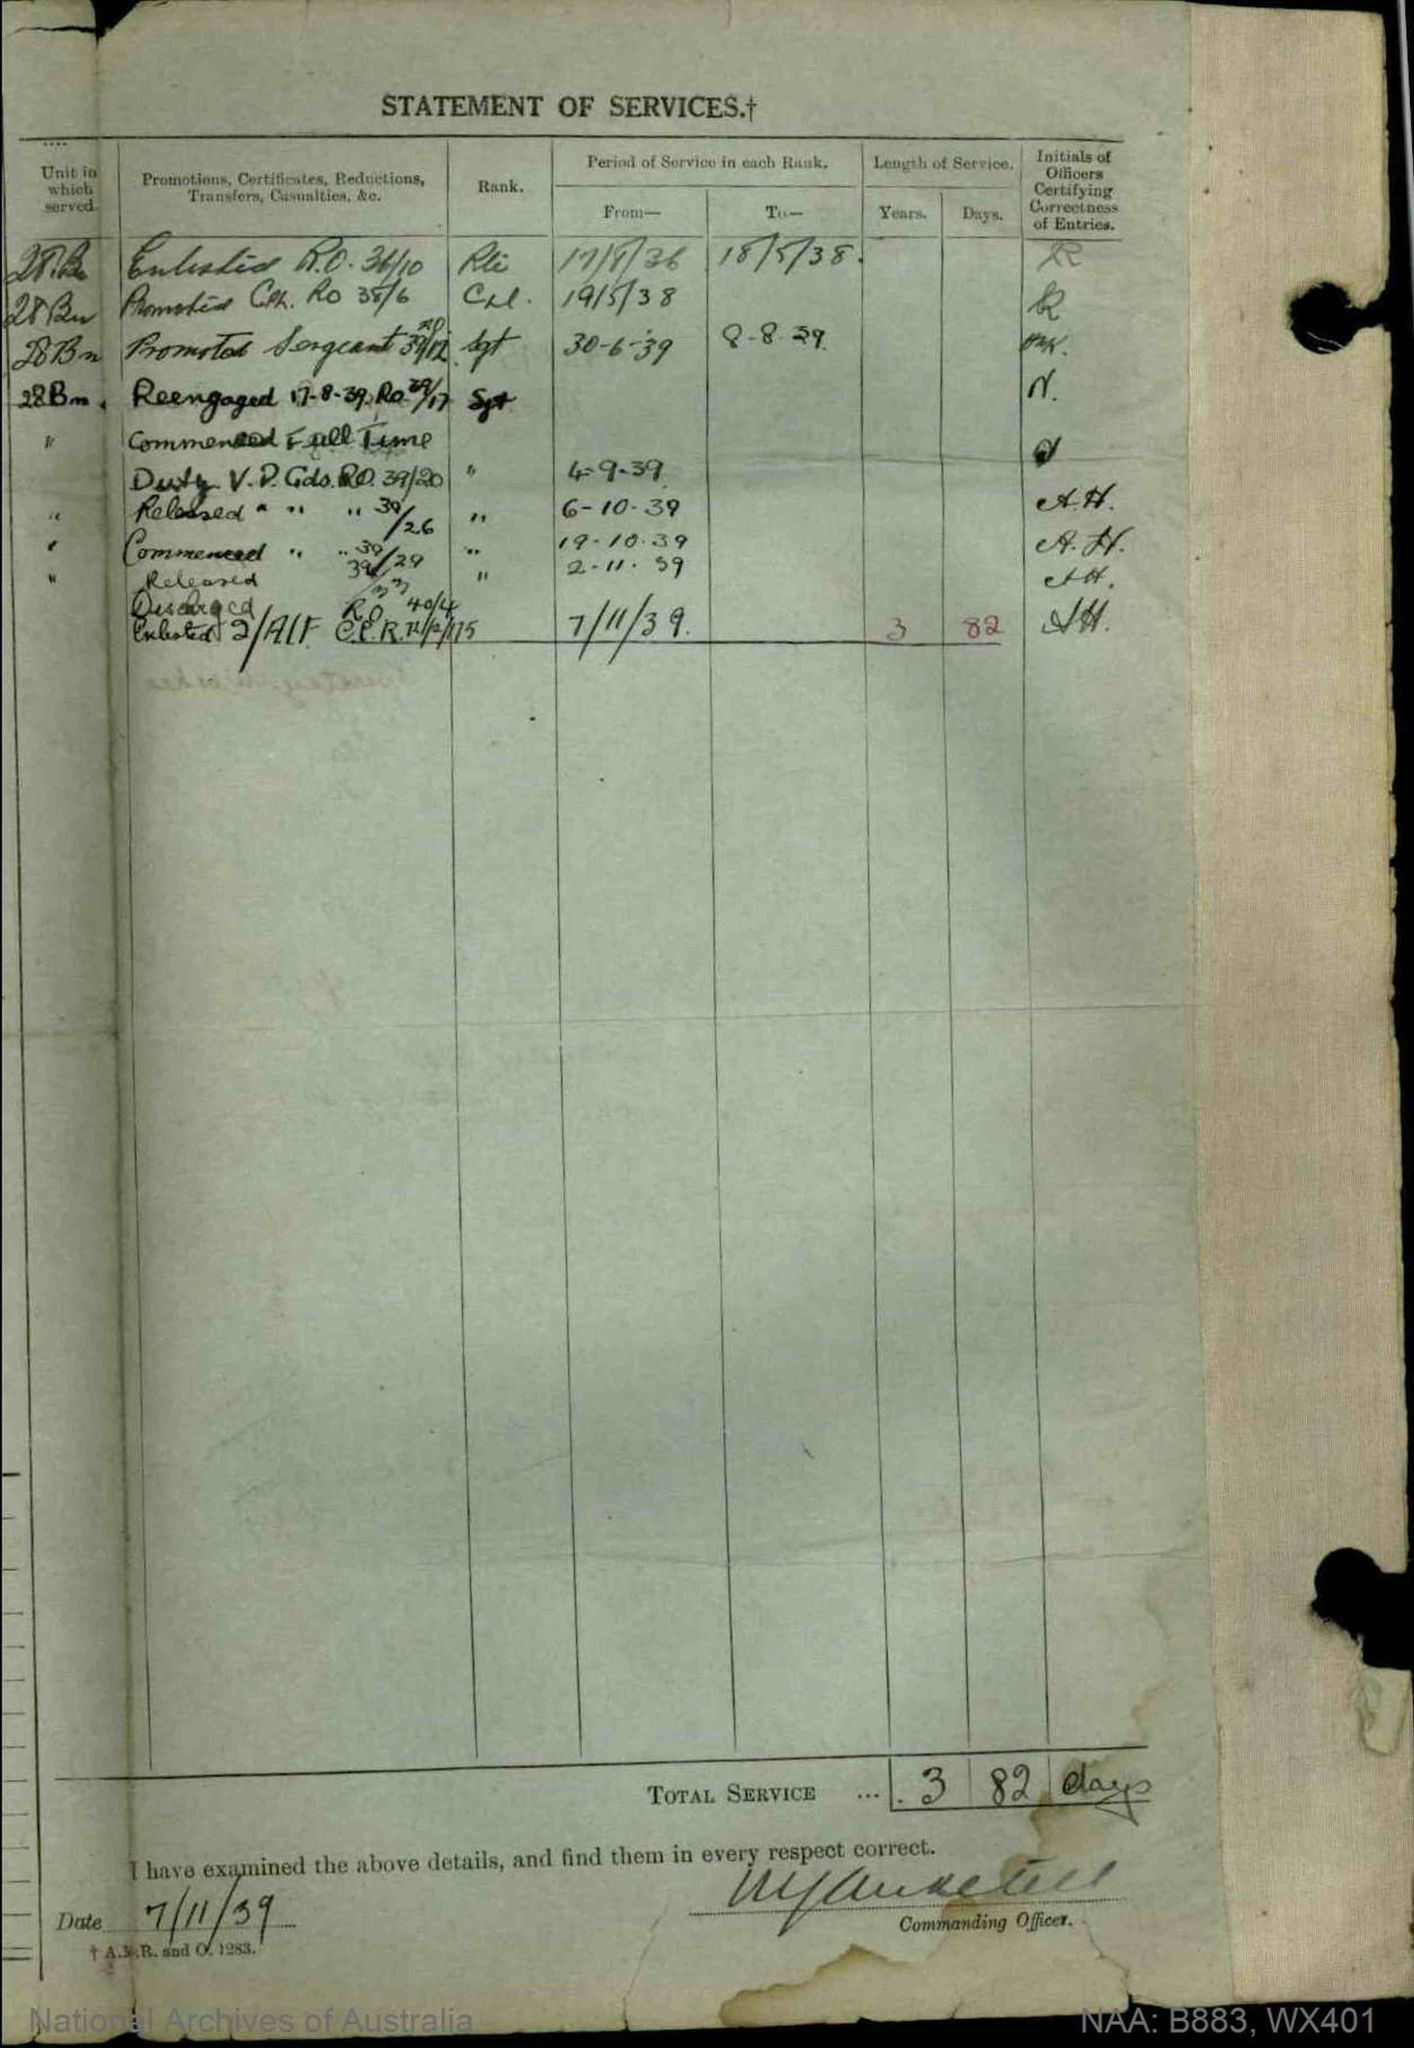 STATEMENT OF SERVICES.†
Unit in which served.
Promotions, Certificates, Reductions, Transfers, Casualties, &c.
Rank.
Period of Service in each Rank.
From—
To—
Length of Service.
Years.
Days.
Initials of Officers Certifying Correctness of Entries.
28.Bn Enlisted R.O. 36/10 17/8/36 18/5/38.
28 Bn Promoted Cpl. RO 38/6 Cpl. 19/5/38
28 Bn Promoted Sergeant 39/12 Sgt 30-6-39 8-8-39
28 Bn. Reengaged 17-8-39 RO 39/17 Sgt N.
" Commenced Full Time
Duty V.P. Gds. RO. 39/20 " 4-9-39
" Released " " " 39/26 " 6-10-39 A.H.
" Commenced " " 39/29 " 19-10-39 A.H.
" Released 39/33 " 2-11-39 A.H.
Discharged R.O. 40/4
Enlisted 2/AIF 7/11/39. 3 82 A.H.
TOTAL SERVICE ... 3 82 days
I have examined the above details, and find them in every respect correct.
Date 7/11/39
Commanding Officer.
† A.M.R. and O. 1283.
National Archives of Australia
NAA: B883, WX401